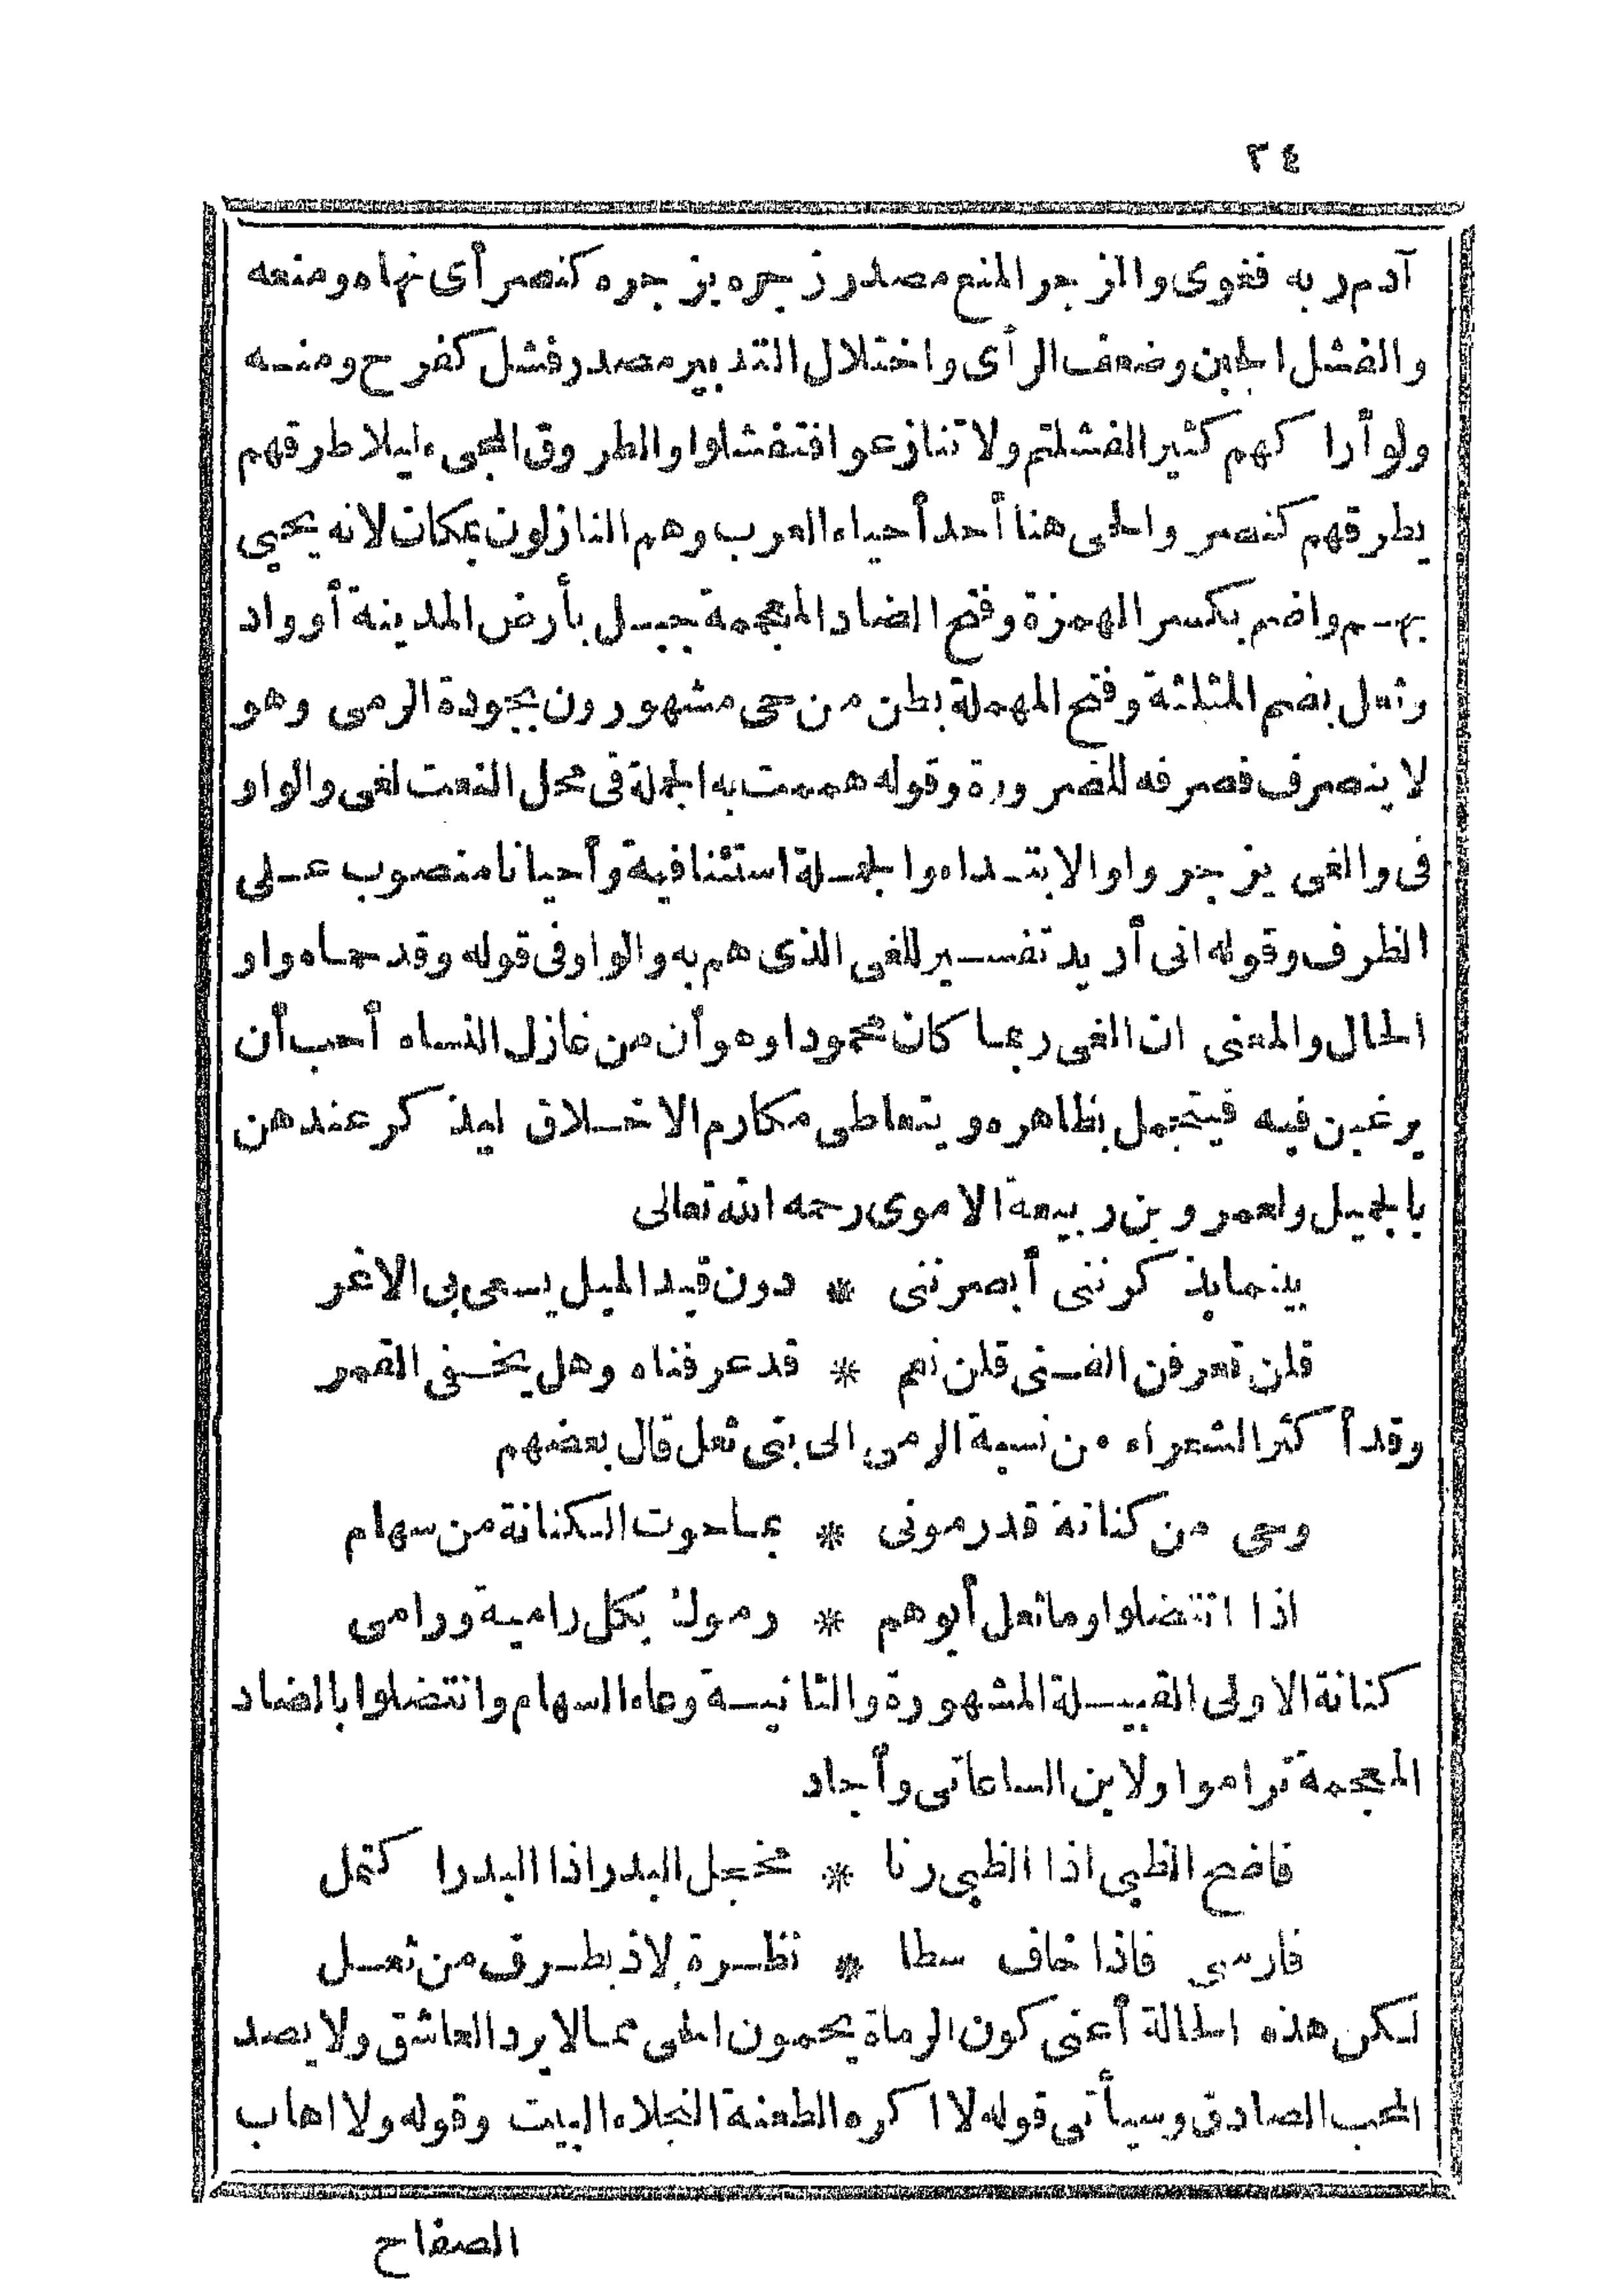 ٣٤
آدم ربه فغوى والزجر المنع مصدر زجره يزجره كنصر أى نهاه ومنعه
والفشل الجبن وضعف الرأى واختلال التدبير مصدر فشل كفرح ومنه
ولو أراكهم كثير الفشلتم ولا تنازعوا فتفشلوا والطروق المجىء ليلا طرقهم
يطرقهم كنصر والحى هنا أحد أحياء العرب وهم النازلون بمكان لانه يحيى
بهم واضم بكسر الهمزة وفتح الضاد المعجمة جبل بأرض المدينة أو واد
وثعل بضم المثلثة وفتح المهملة بطن من حى مشهورون بجودة الرمى وهو
لا ينصرف فصرفه للضرورة وقوله هممت به الجملة فى محل النعت لغى والواو
فى والغى يزجر واو الابتداء والجملة استئنافية وأحيانا منصوب على
الظرف وقوله انى أريد تفسير للغى الذى هم به والواو فى قوله وقد حماه واو
الحال والمعنى ان الغى ربما كان محمودا وهو أن من غازل النساء أحب أن
يرغبن فيه فيتجمل بظاهره ويتعاطى مكارم الاخلاق ليذكر عندهن
بالجميل ولعمرو بن ربيعة الاموى رحمه الله تعالى
بينما يذكرننى أبصرننى * دون قيد الميل يسعى بى الاغر
قلن تعرفن الفتى قلن نعم * قد عرفناه وهل يخفى القمر
وقد أكثر الشعراء من نسبة الرمى الى بنى ثعل قال بعضهم
وحى من كنانة قد رمونى * بما حوت الكنانة من سهام
اذا انتضلوا وما ثعل أبوهم * رموك بكل رامية ورامى
كنانة الاولى القبيلة المشهورة والثانية وعاء السهام وانتضلوا بالضاد
المعجمة تراموا ولابن الساعاتى وأجاد
فاضح الظبى اذا الظبى رنا * مخجل البدر اذا البدر اكتمل
فارسى فاذا خاف سطا * نظرة لاذ بطرف من ثعل
لكن هذه الحالة أعنى كون الرماة يحمون الحى مما لا يرد العاشق ولا يصد
المحب الصادق وسيأتى قوله لا اكره الطعنة النجلاء البيت وقوله ولا اهاب
الصفاح